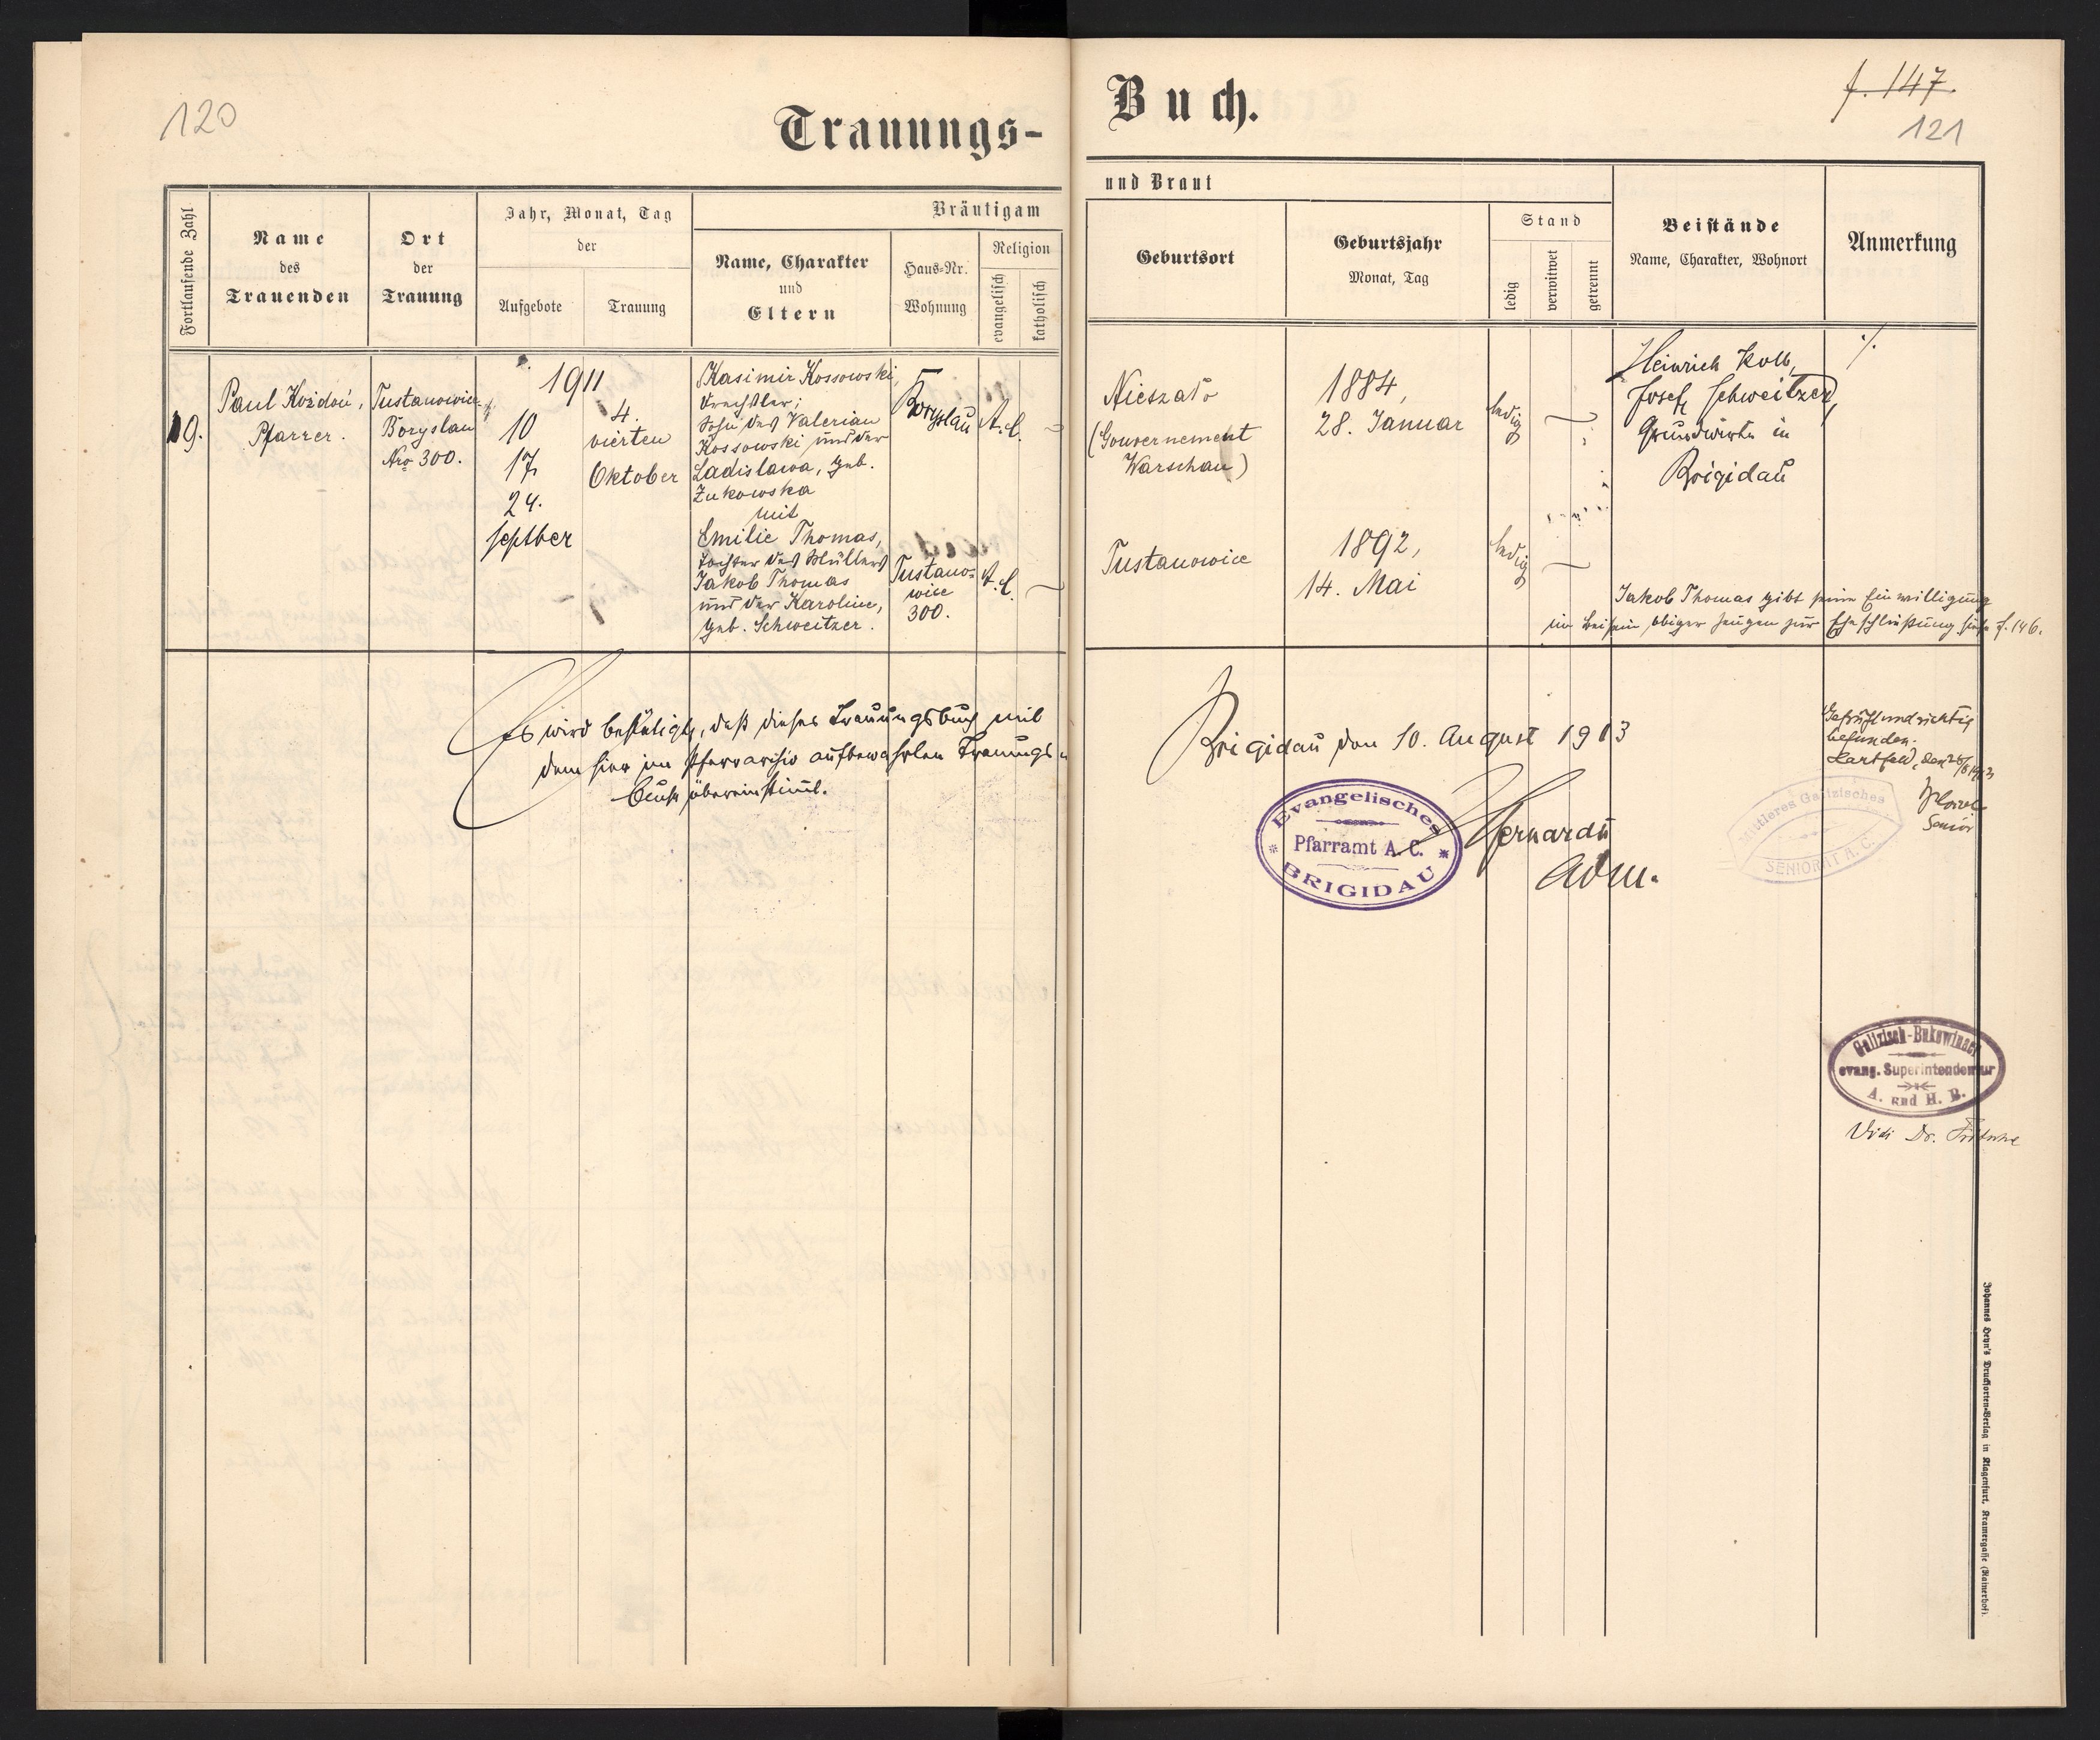 120
Trauungs-
Fortlaufende Zahl
Name
des
Trauenden
Ort
der
Trauung
Jahr, Monat, Tag
der
Aufgebote
Trauung
Bräutigam
Name, Charakter
und
Eltern
Haus-Nr.
Wohnung
Religion
evangelisch
katholisch
19.
Paul Koždoń,
Pfarrer.
Tustanowice-
Boryslau
Nro 300.
1911
10
17
24.
Septber
4.
vierten
Oktober
Kasimir Kossowski,
Drechsler;
Sohn des Valerian
Kossowski und der
Ladislawa, geb.
Żukowska
mit
Emilie Thomas,
Tochter des Müllers
Jakob Thomas
und der Karoline,
geb. Schweitzer.
Boryslau
Tustano-
wice
300.
A.C.
A.C.
Es wird bestätigt, daß dieses Trauungsbuch mit
dem hier im Pfarrarchiv aufbewahrten Trauungs-
buch übereinstimmt.
f. 147.
121
Buch.
und Braut
Geburtsort
Geburtsjahr
Monat, Tag
Stand
ledig
verwitwet
getrennt
Beistände
Name, Charakter, Wohnort
Anmerkung
(Gouvernement
Warschau)
1884,
28. Januar
ledig
Heinrich Kolb,
Josef Schweitzer,
Grundwirte in
Brigidau
./.
Tustanowice
1892,
14. Mai
ledig
Jakob Thomas gibt seine Einwilligung
im Beisein obiger Zeugen zur Eheschließung siehe f. 146.
Brigidau den 10. August 1913
Evangelisches
Pfarramt A. C.
BRIGIDAU
Adm.
Geprüft und richtig
befunden.
Senior
Mittleres Galizisches
SENIORAT A. C.
Galizisch-Bukowinaer
evang. Superintendentur
A. und H. B.
Vidi Dr.
Johannes Heyn's Drucksorten-Verlag in Klagenfurt, Kramergasse (Rainerhof).